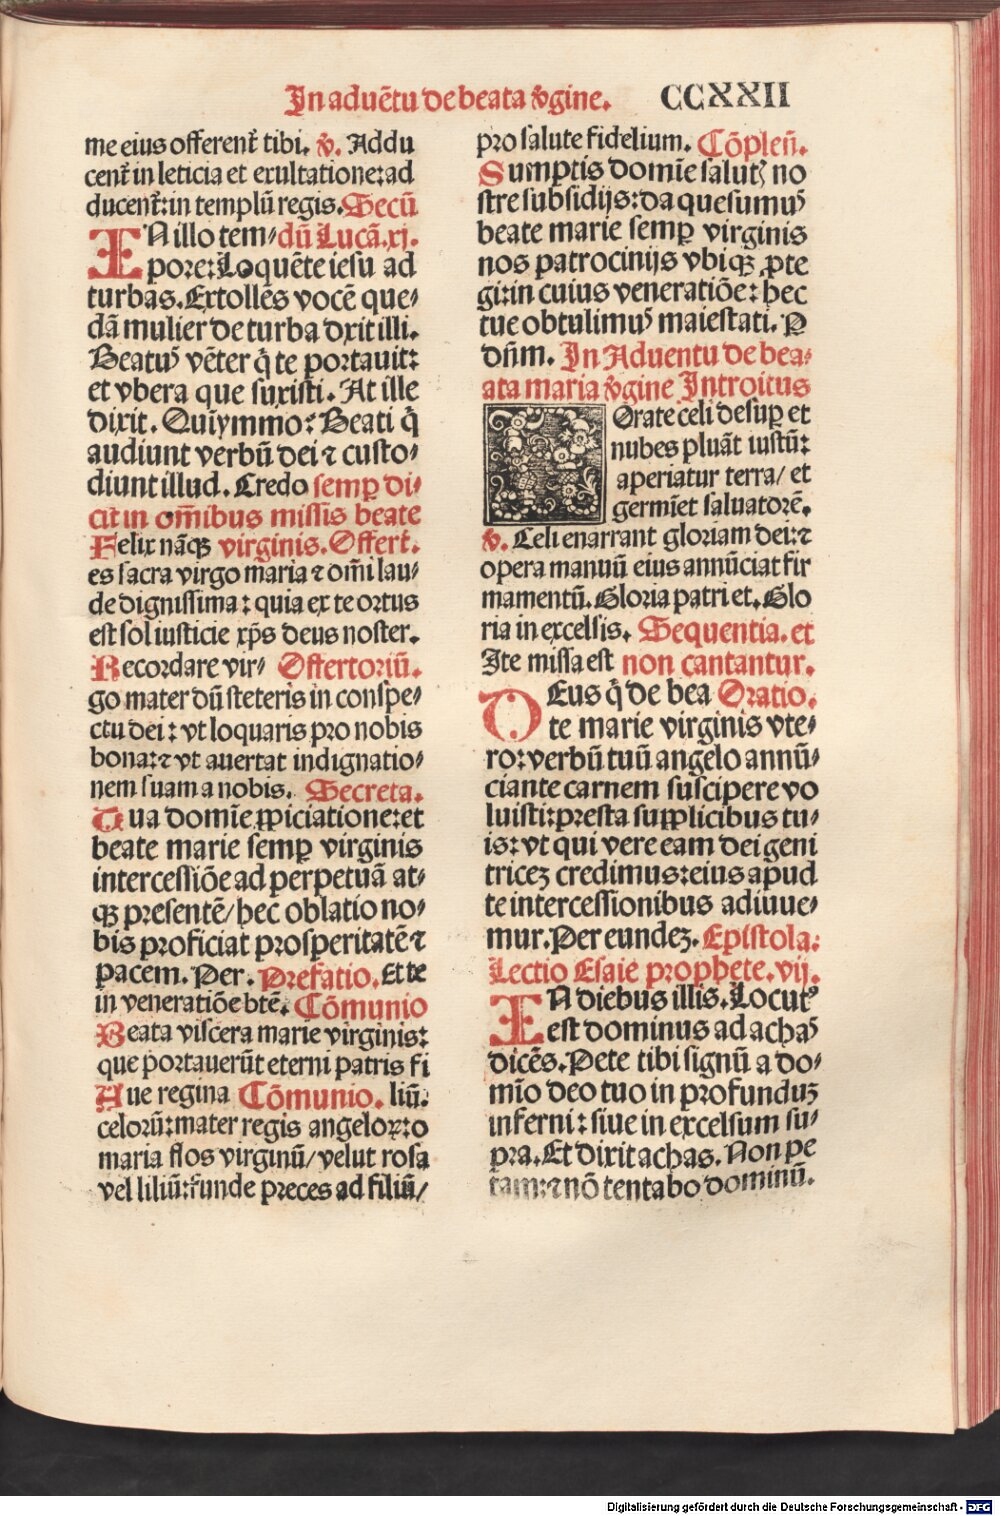 In aduētu de beata v̄gine. CCXXII
me eius offerent᷑ tibi. v̄. Addu
cent᷑ in leticia et exultatione: ad
ducent᷑: in templū regis. Secū
IN illo tem⸗ dū Lucā. xj.
pore: Loquēte iesu ad
turbas. Extollēs vocē que⸗
dā mulier de turba dixit illi.
Beatꝰ vēter q̄ te portauit:
et vbera que suxisti. At ille
dixit. Quiīymmo: Beati q̄
audiunt verbū dei ⁊ custo⸗
diunt illud. Credo semꝑ di⸗
cit᷑ in om̄ibus missis beate
Felix nāqꝫ virginis. Offert̄.
es sacra virgo maria ⁊ om̄i lau⸗
de dignissima: quia ex te ortus
est sol iusticie xp̄s deus noster.
Recordare vir⸗ Offertoriū.
go mater dū steteris in conspe⸗
ctu dei: vt loquaris pro nobis
bona: ⁊ vt auertat indignatio⸗
nem suam a nobis. Secreta.
Tua domīe ꝓpiciatione: et
beate marie semꝑ virginis
intercessiōe ad perpetuā at⸗
qꝫ presentē/ hec oblatio no⸗
bis proficiat prosperitatē ⁊
pacem. Per. Prefatio. Et te
in veneratiōe btē. Cōmunio
Beata viscera marie virginis:
que portauerūt eterni patris fi
Aue regina Cōmunio. liū.
celorū: mater regis angeloꝝ: o
maria flos virginū/ velut rosa
vel liliū: funde preces ad filiū/
pro salute fidelium. Cōpleñ.
Sumptis domīe salutꝫ no
stre subsidijs: da quesumꝰ
beate marie semꝑ virginis
nos patrocinijs vbiqꝫ ꝓte
gi: in cuius veneratiōe: hec
tue obtulimꝰ maiestati. P
dn̄m. In Aduentu de bea⸗
ata maria v̄gine Introitus
Rorate celi desuꝑ et
nubes pluāt iustū:
aperiatur terra/ et
germīet saluatorē.
v̄. Celi enarrant gloriam dei: ⁊
opera manuū eius annūciat fir
mamentū. Gloria patri et. Glo
ria in excelsis. Sequentia. et
Ite missa est non cantantur.
DEus q̄ de bea Oratio.
te marie virginis vte⸗
ro: verbū tuū angelo annū⸗
ciante carnem suscipere vo
luisti: presta supplicibus tu⸗
is: vt qui vere eam dei geni
tricē credimus: eius apud
te intercessionibus adiuue⸗
mur. Per eundeꝫ. Epistola.
Lectio Esaie prophete. vij.
IN diebus illis. Locutꝰ
est dominus ad achaꝫ
dicēs. Pete tibi signū a do⸗
mīo deo tuo in profunduꝫ
inferni: siue in excelsum su⸗
pra. Et dixit achas. Non pe
tam: ⁊ nō tentabo dominū.
Digitalisierung gefördert durch die Deutsche Forschungsgemeinschaft - DFG